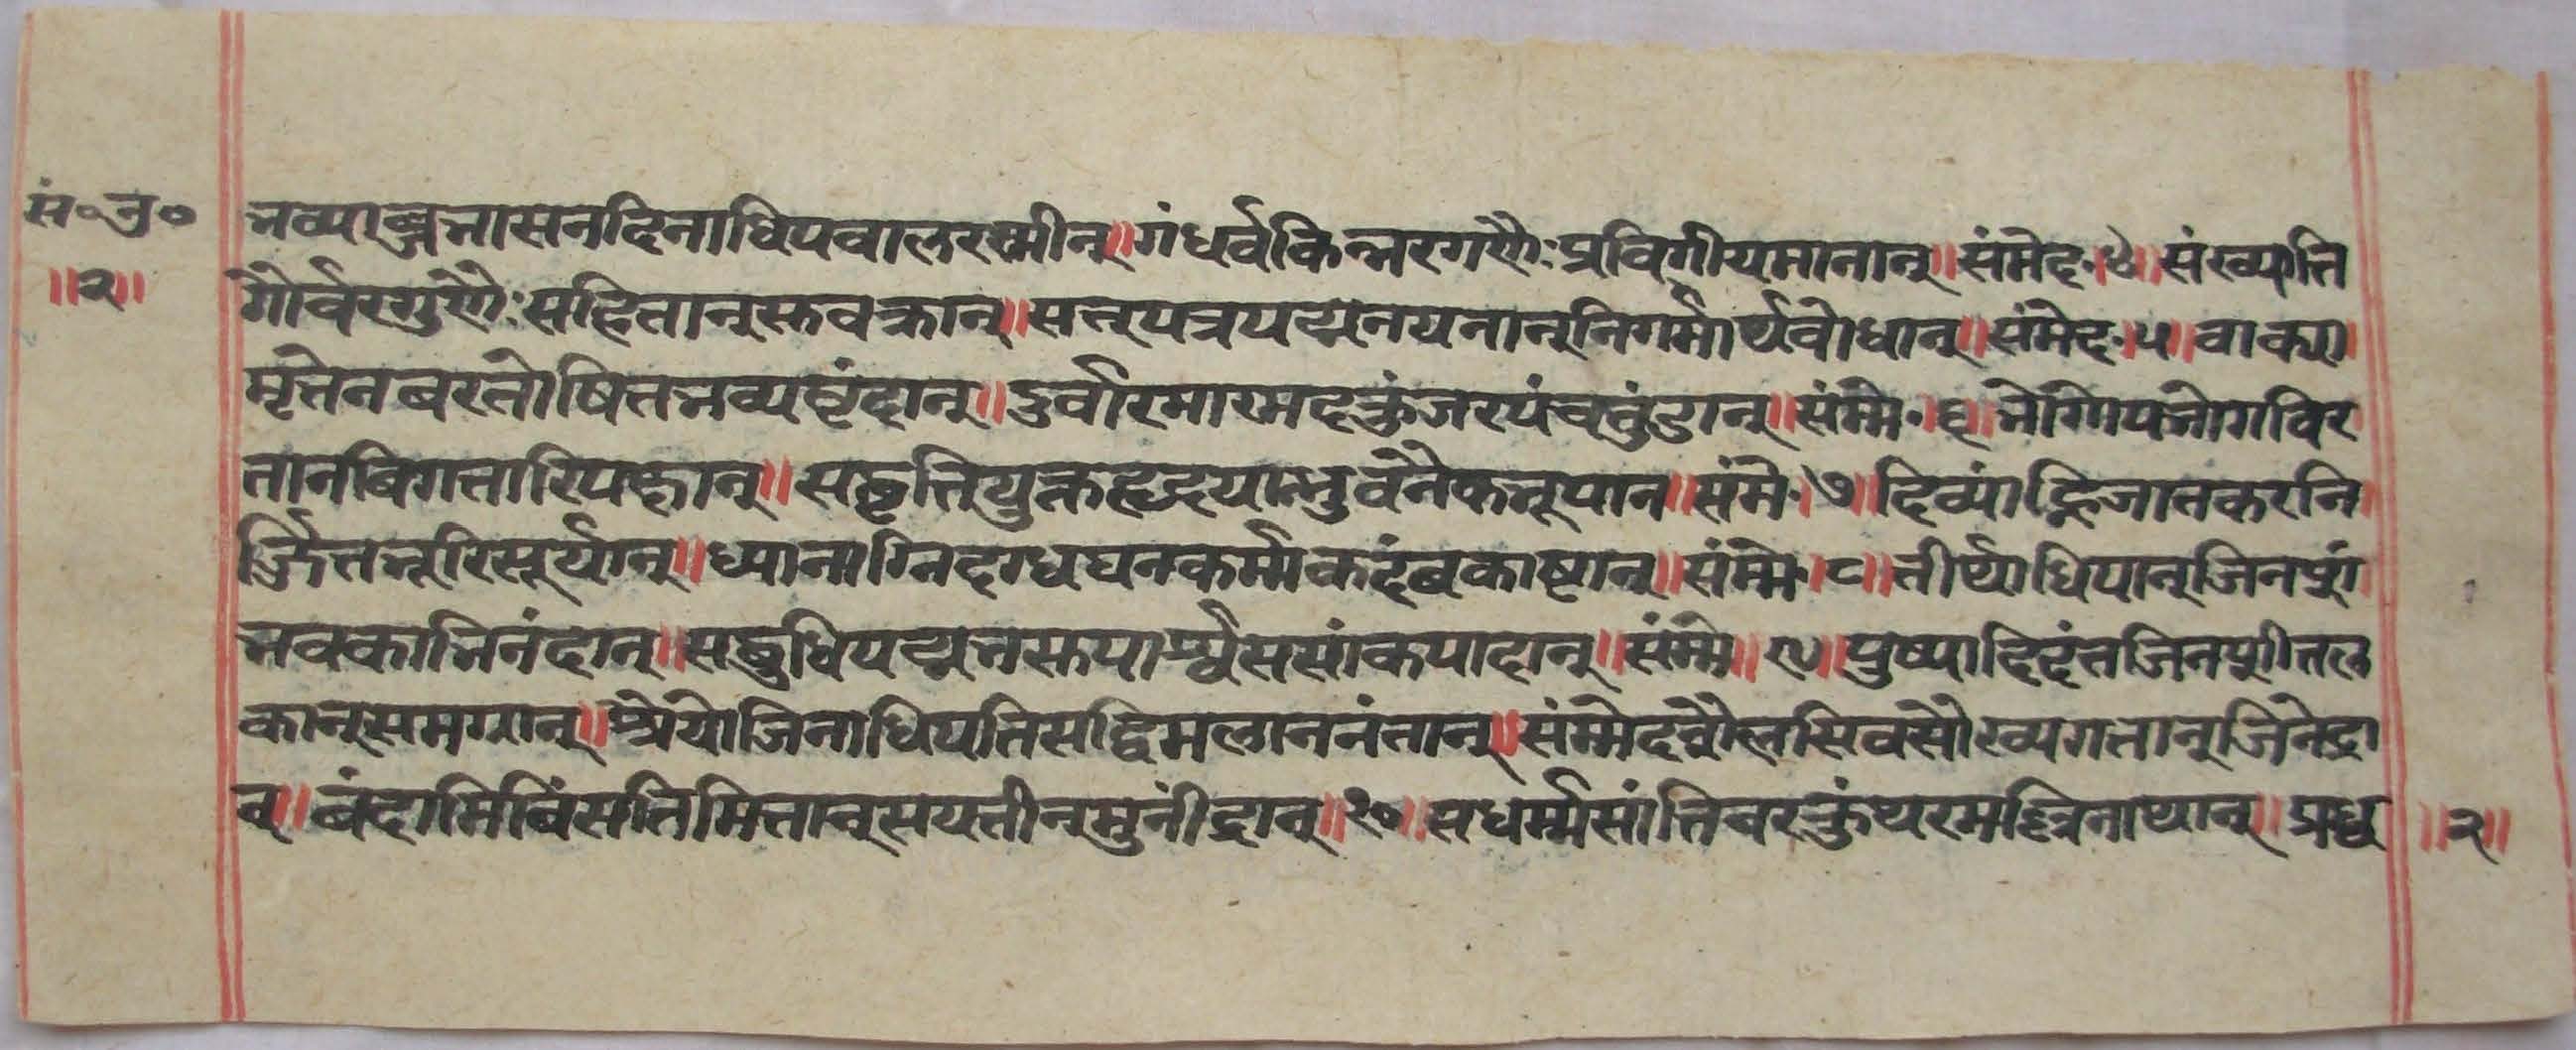 सं॰ नु॰
॥२॥
भव्याब्जभासनदिनाधिपवालरस्मीन्॥गंधर्वकिन्नरगणैः प्रविगीयमानान्॥संमेद॰।४॥संख्याति
गैर्वरगुणैः सहितान्सुवक्रान्॥सत्पत्रपद्मनयनान्निगमार्थवोधान्॥संमेद॰।५॥वाक्या
मृतेनबरतोषितभव्यवृंदान्॥दुर्वारमारमदकुंजरपंचतुंडान्॥संम्मे॰।६॥भोगोपभोगविर
तानबिगतारिपक्षान्॥सद्वृत्तियुक्तहृदयान्भुवनैकभूपान॥संमे॰।७॥दिव्यांह्रिजातकरनि
र्जितभूरिसूर्यान्॥ध्यानाग्निदग्धघनकर्मकदंबकाष्टान्॥संम्मे॰।८॥तीर्थाधिपान्जिनशं
भवकाभिनंदान्॥सद्बुधिपद्मभसुपार्श्वससांकपादान्॥संम्मे॥९॥पुष्पादिदंतजिनशीतल
कान्समग्रान्॥श्रेयोजिनाधिपतिसद्विमलाननंतान्॥संम्मेदशैलसिवसौख्यगतान्जिनेंद्रा
न्॥बंदामिबिंसतिमितान्सयतीन्मुनींद्रान्॥१०॥सधर्म्मसांतिवरकुंथरमल्लिनाथान्॥प्रध्व
॥२॥